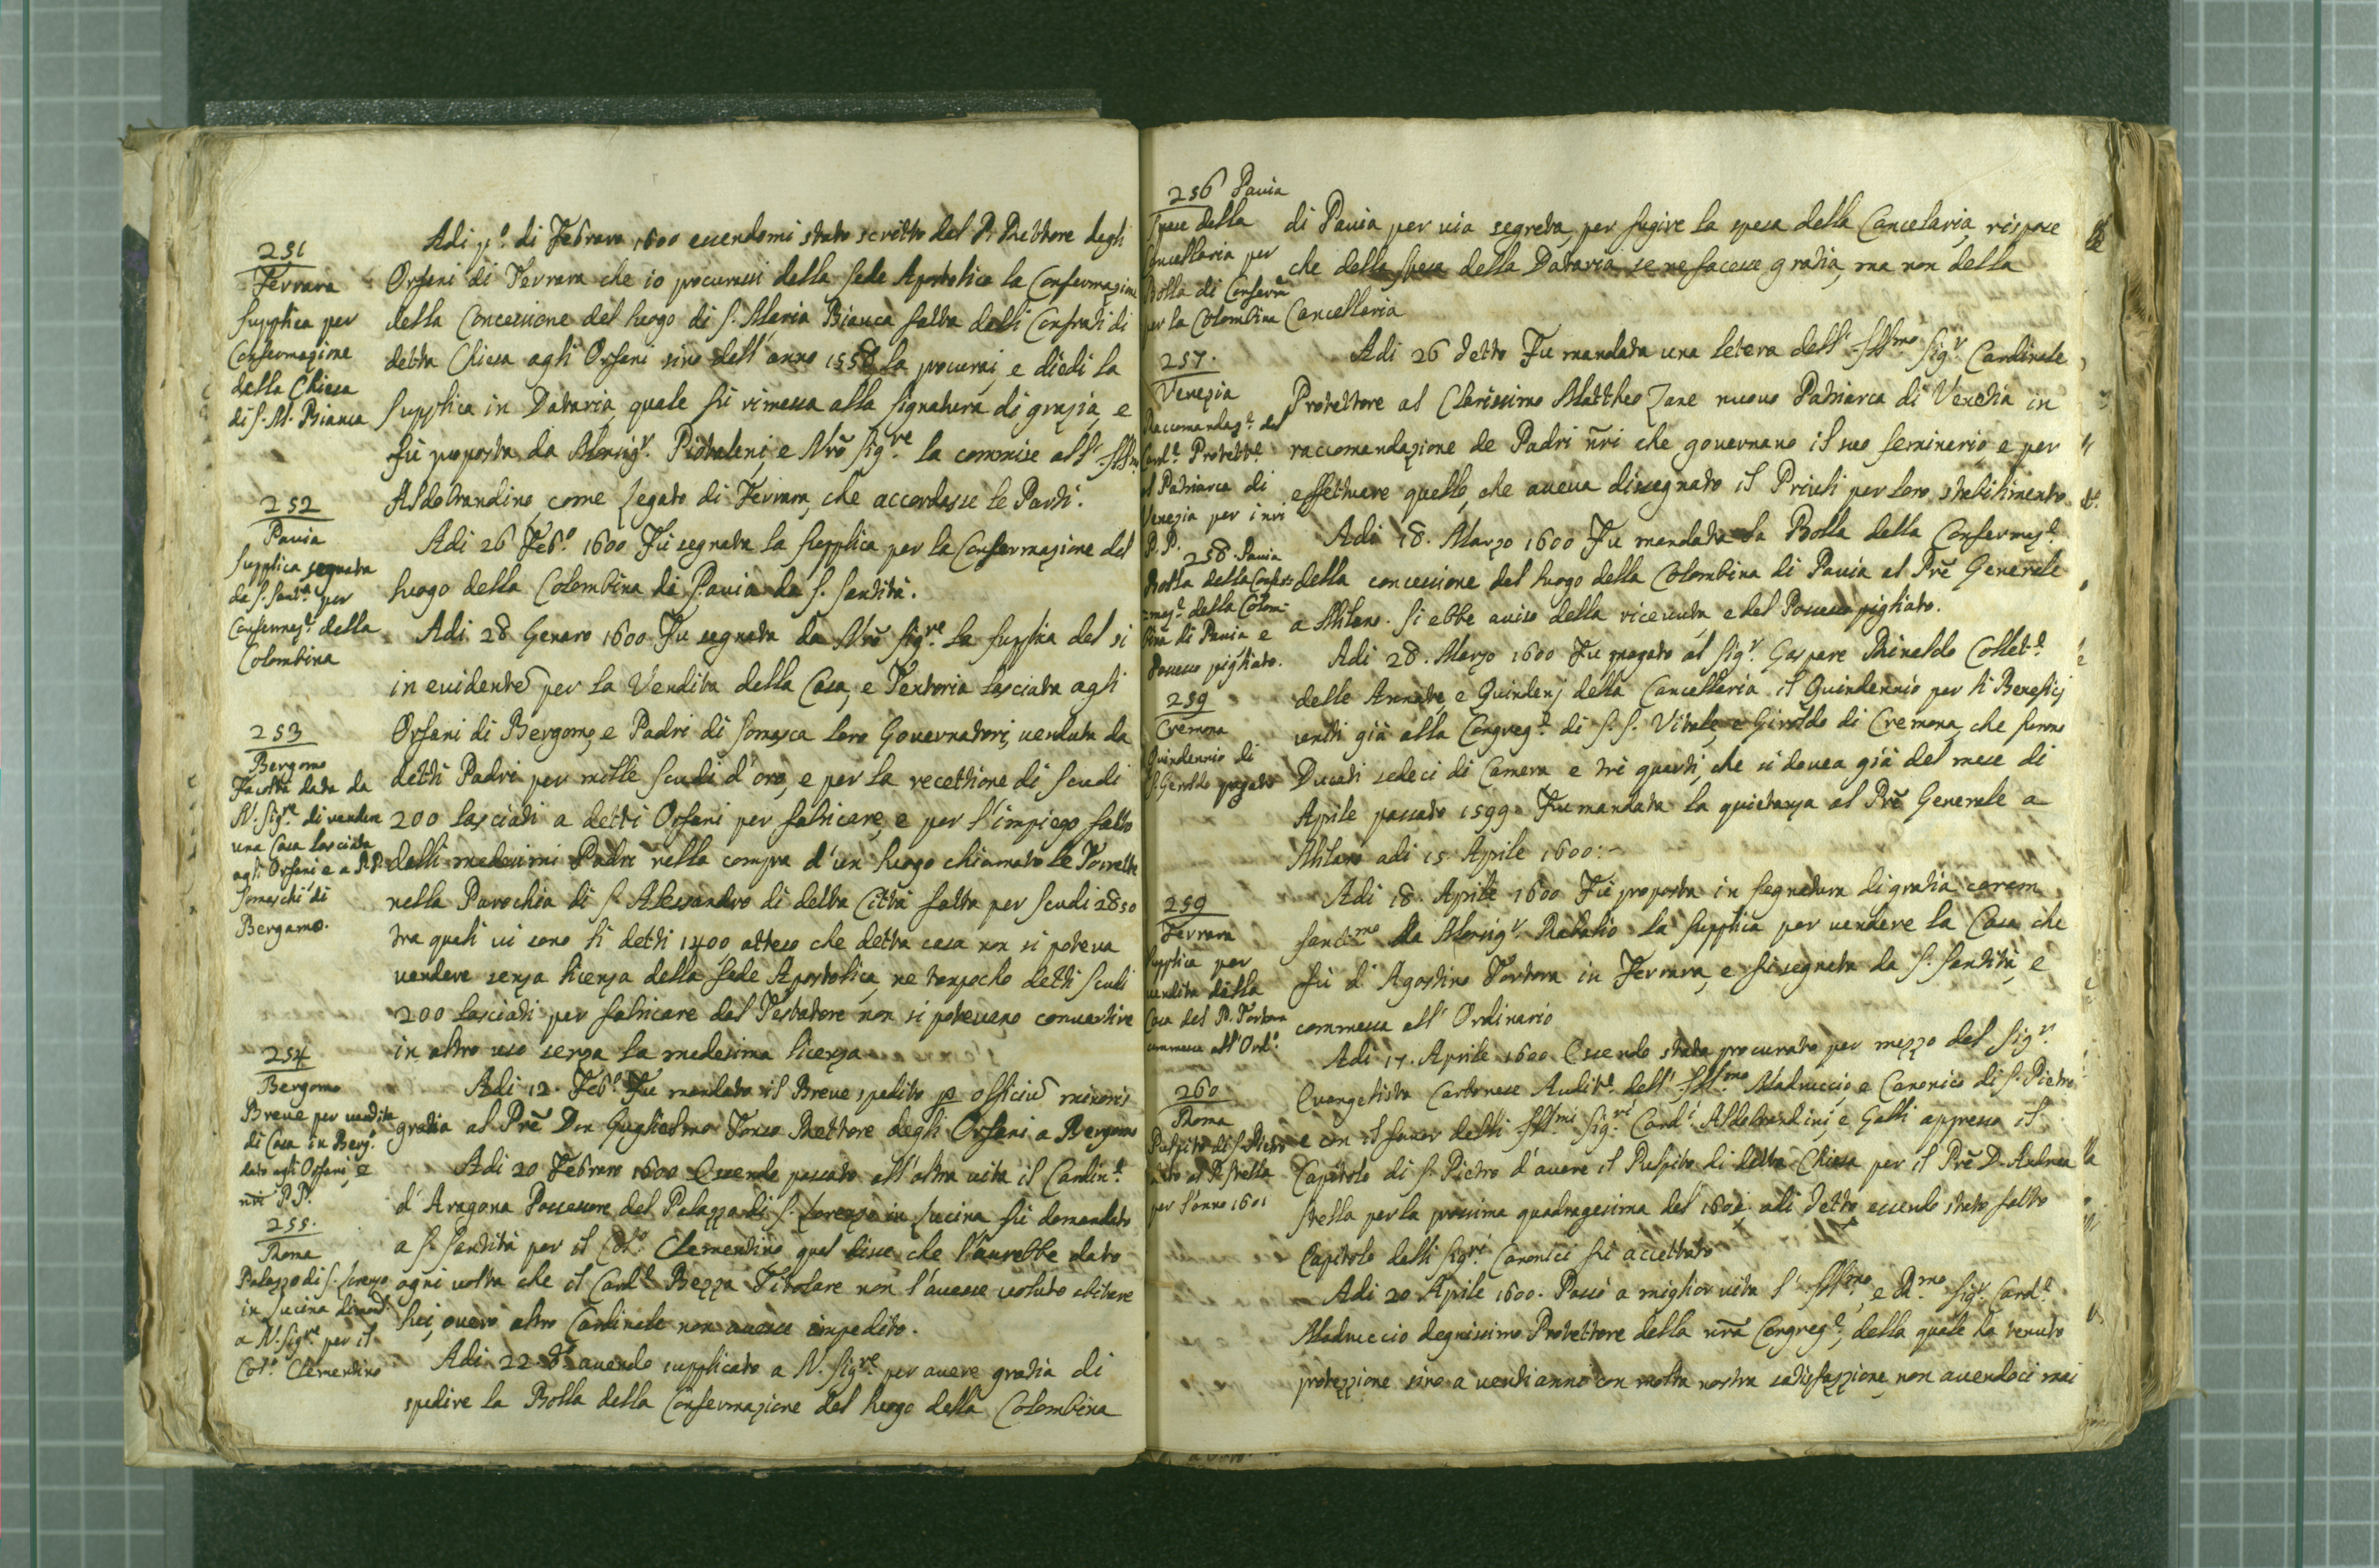 251
Ferrara
Supplica per
Confermazione
della Chiesa
di S. M. Bianca
252
Pavia
Supplica segnata
da S. Sant.à per
Confermaz.e della
Colombina
253
Bergomo
Facoltà data da
N. Sig.re di vender
una Casa lasciata
agli Orfani e a P.P.
Somaschi di
Bergamo.
254
Bergomo
Breve per vendita
di Casa in Berg.o
dato agli Orfani, e
nri P.P.
255.
Roma
Palazzo di S. Lorenzo
in Lucina dimand.
a N. Sig.re per il
Col.o Clementino
Adi p.o di Febraro 1600 essendomi stato scritto dal P. Rettore degli
Orfani di Ferrara che io procurassi dalla Sede Apostolica la Confermazione
della Concessione del luogo di S. Maria Bianca fatta dalli Confrati di
detta Chiesa agli Orfani sino dell'anno 1558 la procurai, e diedi la
Supplica in Dataria, quale fù rimessa alla Signatura di grazia, e
fù proposta da Monsig.r e Nrõ Sig.re la commise all' Ill.mo
Aldobrandino, come Legato di Ferrara, che accordasse le Parti.
Adi 26 Feb.o 1600 Fù segnata la Supplica per la Confermazione del
luogo della Colombina di Pavia da S. Santità.
Adi 28 Genaro 1600 Fu segnata da Nrõ Sig.re la Supplica del si
in evidente per la Vendita della Casa, e Tentoria lasciata agli
Orfani di Bergomo, e Padri di Somasca loro Governatori, venduta da
detti Padri per mille scudi d'oro, e per la recettione di scudi
200 lasciati a detti Orfani per fabricare, e per l'impiego fatto
dalli medesimi Padri nella compra d'un luogo chiamato le Torrette
nella Parochia di S. Alessandro di detta Città fatta per scudi 2850
tra quali vi sono li detti 1400 atteso che detta casa non si poteva
vendere senza licenza della Sede Apostolica, ne tanpocho detti scudi
200 lasciati per fabricare dal Testatore non si potevano convertire
in altro uso senza la medesima licenza
Adi 12. Feb.o Fu mandato il Breve spedito p officiũ minoris
gratia al Prẽ Don Guglielmo Tonso Rettore degli Orfani a Bergomo
Adi 20 Febraro 1600 Essendo passato all'altra vita il Cardin.e
d'Aragona Possessore del Palazzo di S. Lorenzo in Lucina fù domandato
a S. Santità per il Col.o Clementino qual disse che l'aurebbe dato
ogni volta che il Card.e Bezza Titolare non l'avesse voluto abitare
lui, overo altro Cardinale non avesse impedito.
Adi 22 d.o avendo supplicato a N. Sig.re per avere gratia di
spedire la Bolla della Confermazione del luogo della Colombina
256 Pavia
Spese della
Cancellaria per
Bolla di Conferm.
per la Colombina
257.
Venezia
Raccomandaz.e del
Card.e Protett.e
al Patriarca di
Venezia per i nri
P.P.
258. Pavia
Bolla della Confer-
maz.e della Colom-
bina di Pavia e
Possesso pigliato.
259
Cremona
Quindennio di
S. Geroldo pagato
259
Ferrara
Supplica per
vendita della
Casa del P. Tortora
commessa all'Ord.o
260
Roma
Pulpito di S. Pietro
dato al P. Stella
per l'anno 1601
di Pavia per via segreta, per fugire la spesa della Cancelaria, rispose
che della spesa della Dataria se ne facesse gratia, ma non della
Cancellaria
Adi 26 detto Fu mandata una letera dell' Ill.mo Sig.r Cardinale
Protettore al Clarissimo Mattheo Zane nuovo Patriarca di Venetia in
raccomandazione de Padri nri che governano il suo seminario e per
effettuare quello, che aveva dissegnato il Priuli per loro stabilimento.
Adi 18. Marzo 1600 Fu mandata la Bolla della Confermaz.e
della concessione del luogo della Colombina di Pavia al Prẽ Generale
a Milano. Si ebbe aviso della ricevuta e del Possesso pigliato.
Adi 28. Marzo 1600 Fu pagato al Sig.r Gaspare Rinaldo Collet.e
delle Annate, e Quindenj della Cancellaria il Quindennio per li Beneficj
uniti già alla Congreg.e di S.S. Vitale, e Giroldo di Cremona, che furno
Ducati sedeci di Camera e trè quarti, che si dovea già del mese di
Aprile passato 1599. Fu mandata la quietanza al Prẽ Generale a
Milano adi 15 Aprile 1600:
Adi 18. Aprile 1600 Fù proposta in Segnatura di gratia coram
Sanct.mo da Monsig.r la Supplica per vendere la Casa che
fù d'Agostino Tortora in Ferrara, e fù segnata da S. Santità, e
commessa all' Ordinario
Adi 17. Aprile 1600 Essendo stato procurato per mezzo del Sig.r
Evangelista Carbonese Audit.e dell' Ill.mo Madruccio, e Canonico di S. Pietro
e con il favor delli Ill.mi Sig.ri Card.i Aldobrandini, e Galli appresso il
Capitolo di S. Pietro d'avere il Pulpito di detta Chiesa per il Prẽ D. Andrea
Stella per la prossima quadragesima del 1601. adi detto essendo stato fatto
Capitolo dalli Sig.ri Canonici fù accettato
Adi 20 Aprile 1600. Passò a miglior vita l' Ill.mo, e R.mo Sig.r Card.e
Madruccio degnissimo Protettore della nrã Congreg.e, della quale ha tenuto
protezzione sino a venti anni con molta nostra sadisfazzione, non avendoci mai